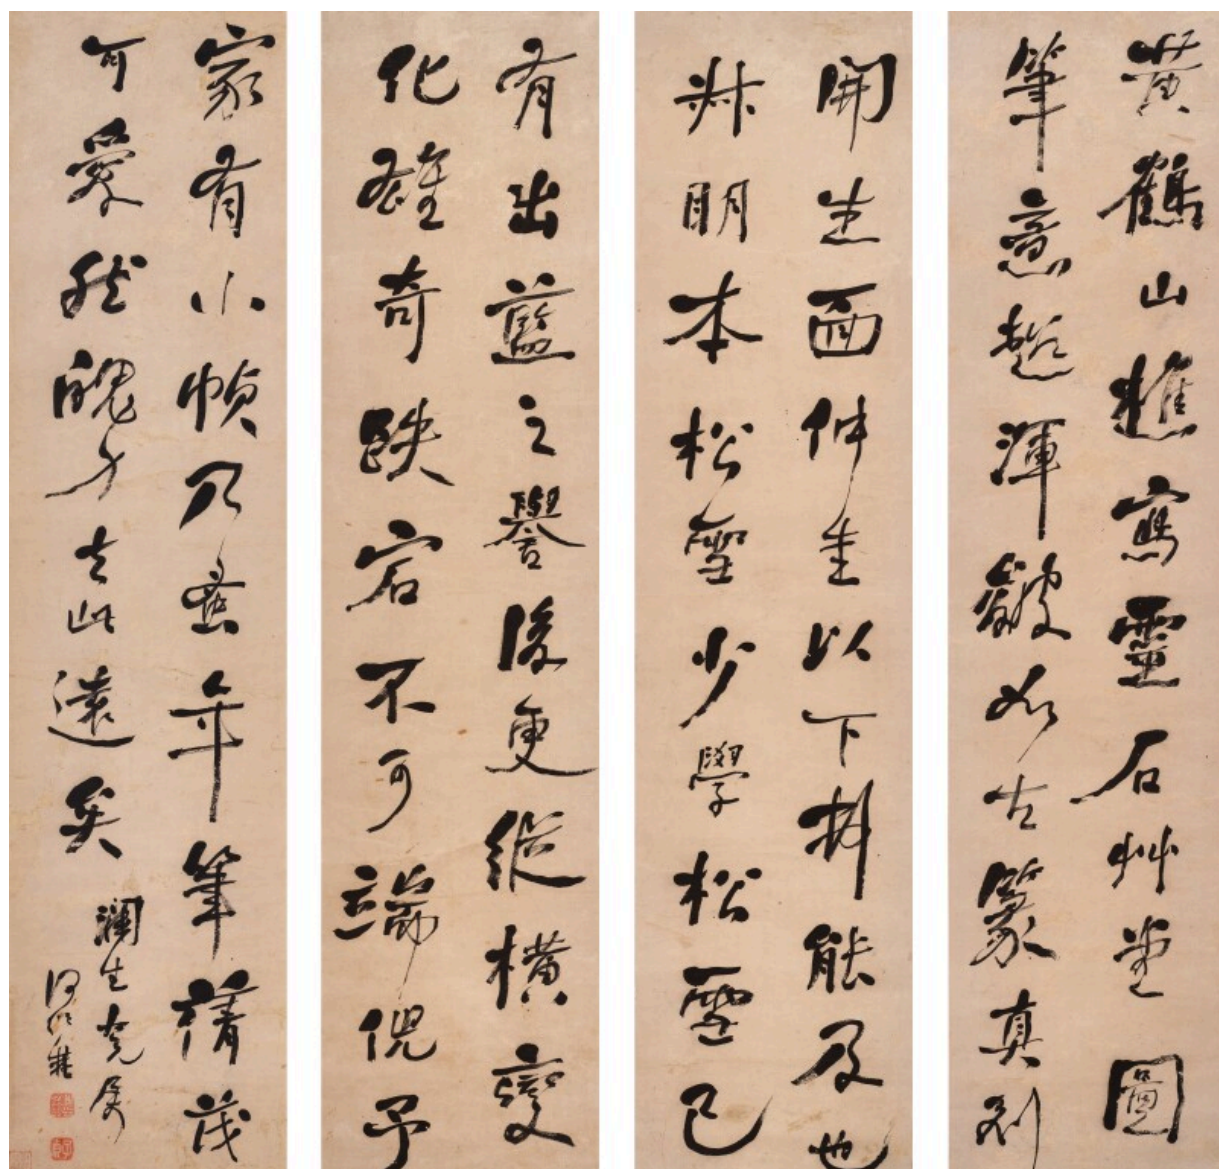 黃鶴山樵寫靈石艸堂圖
筆意超渾皴如古篆真別
開生面仲圭以下能及也
叔明本松雪少學松雪已
有出藍之譽後更縱橫變
化雄奇跌宕不可端倪予
家有小幀乃蚤年筆蒨茂
可愛然魄力去此遠矣
瀾生大兄屬
何紹基